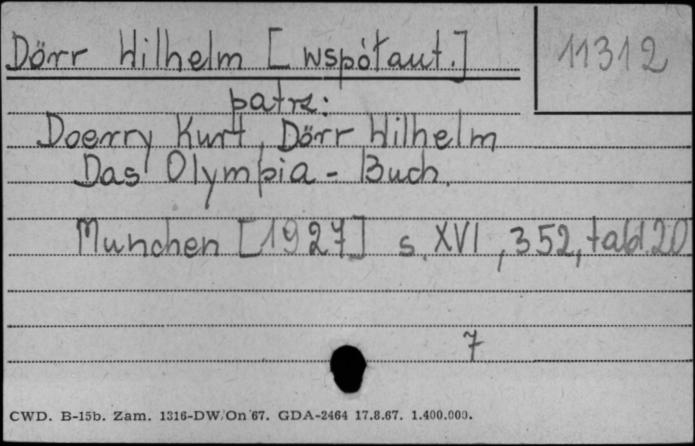 Dörr Wilhelm [współaut.]
11312
patrz:
Doerry Kurt, Dörr Wilhelm
Das Olympia-Buch.
Munchen [1927] s. XVI, 352, tabl. 20
7
CWD. B-15b. Zam. 1316-DW/On 67. GDA-2464 17.8.67. 1.400.000.